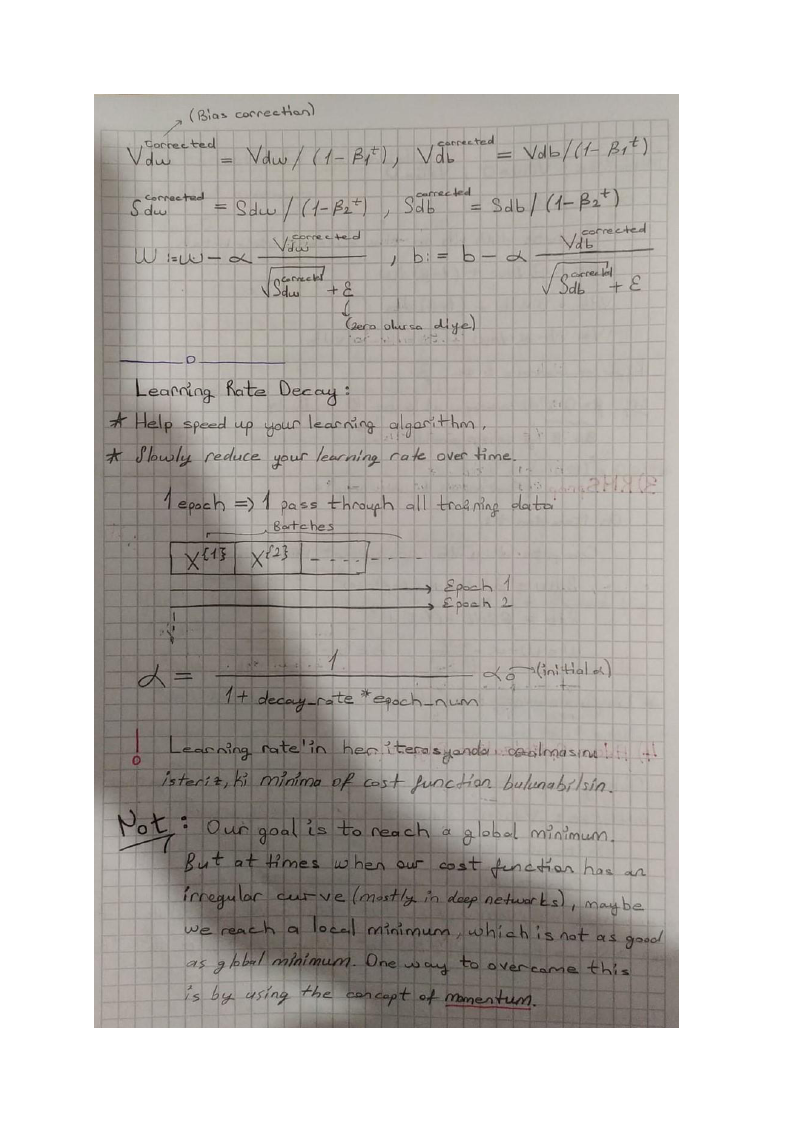 (Bias correction)
Vdw^corrected = Vdw / (1-β1^t), Vdb^corrected = Vdb/(1-β1^t)
Sdw^corrected = Sdw / (1-β2^t), Sdb^corrected = Sdb / (1-β2^t)
W := w - α Vdw^corrected / √Sdw^corrected + ε , b := b - α Vdb^corrected / √Sdb^corrected + ε
(zero olursa diye)
Learning Rate Decay:
* Help speed up your learning algorithm.
* Slowly reduce your learning rate over time.
1 epoch => 1 pass through all training data
Batches
X^{1} X^{2} - - - - - - - -
Epoch 1
Epoch 2
α = 1 / 1 + decay_rate * epoch_num α0 → (initial α)
! Learning rate'in her iterasyonda azalmasını
isteriz, ki minima of cost function bulunabilsin.
Not: Our goal is to reach a global minimum.
But at times when our cost function has an
irregular curve (mostly in deep networks), maybe
we reach a local minimum, which is not as good
as global minimum. One way to overcome this
is by using the concept of momentum.